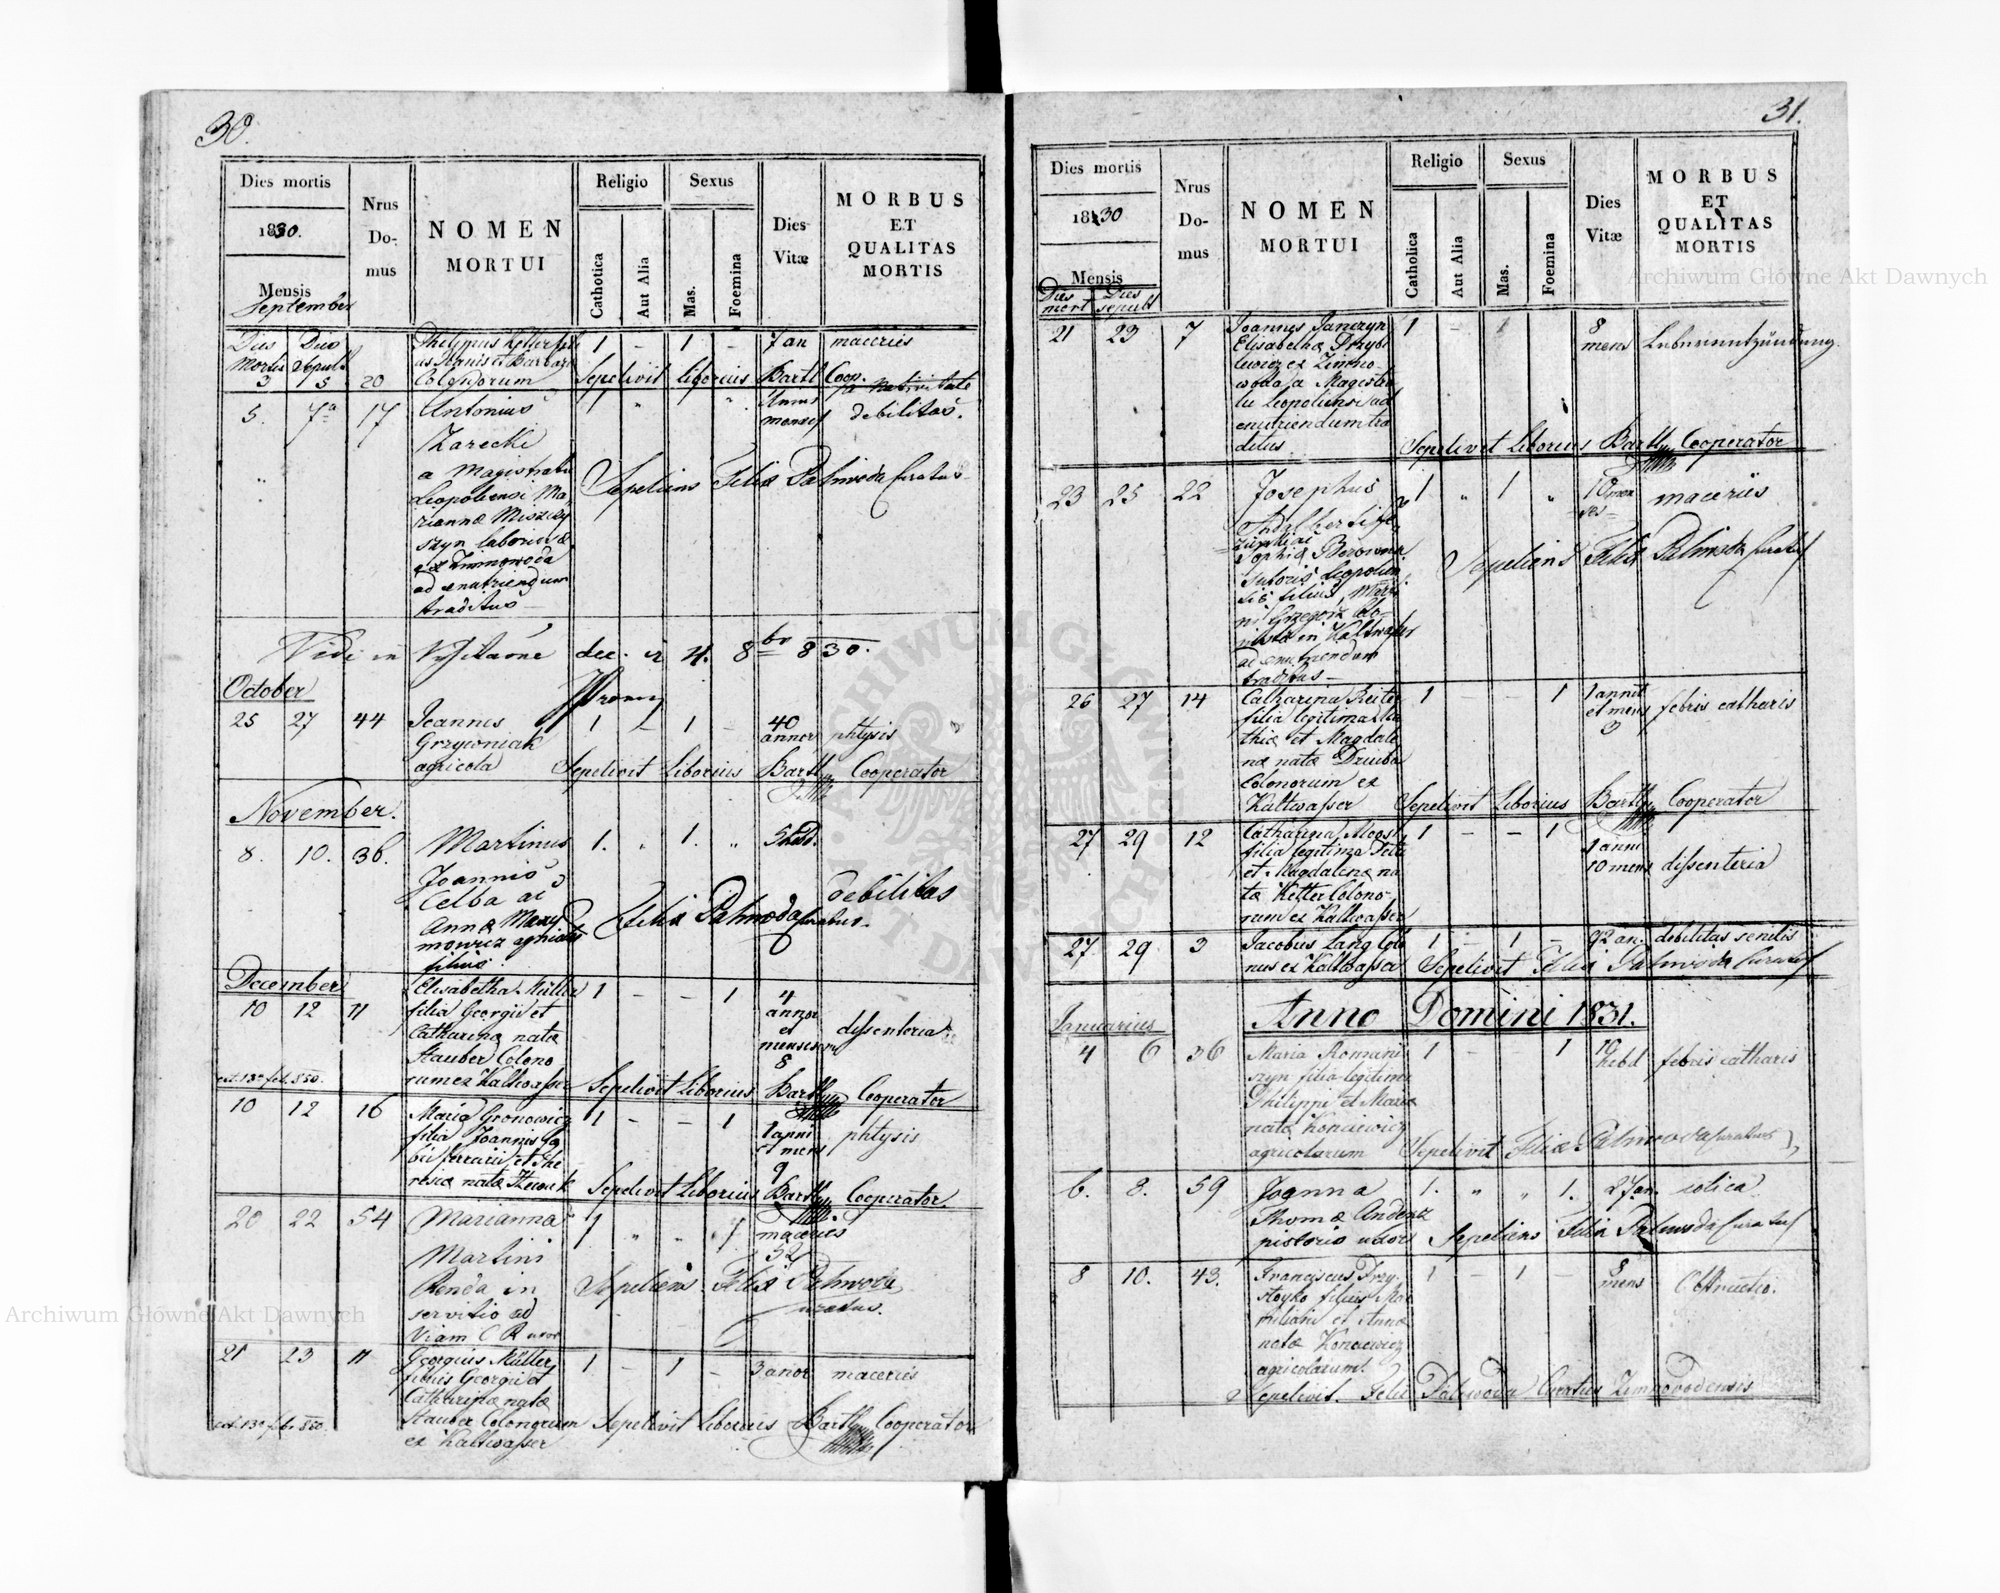 30.
Dies mortis
1830.
Mensis
September
Nrus Do- mus
NOMEN
MORTUI
Religio
Catholica
Aut Alia
Sexus
Mas.
Foemina
Dies Vitæ
MORBUS
ET
QUALITAS
MORTIS
Dies Dies
Mortis Sepult
3 5 20
Philippus Ketter fili
Colonorum
1 - 1 - 7 an maceries
Sepelivit Liborius Bartl Coop.
5. 7a 17
Antonius
Zarecki
a Magistratu
Leopoliensi Ma-
riannæ
ex Zimnowoda
ad enutriendum
traditus
a nativitate
debilitas.
Sepeliens Felix Palmoda Curatus
Vidi in
8bri 830.
October
25 27 44
Joannes
Grzywniak
agricola
1 - 1 - 40 annor phtysis
Sepelivit Liborius Bartl Cooperator
November.
8. 10. 36.
Martinus
Joannis
Celba ac
Annæ
filius
1. " 1. " 5 hebd.
debilitas
Felix Palmoda Curatus.
December
10 12 11
Elisabetha Müller
filia Georgii et
Catharina nata
Stauber Colono
rum ex Kaltwasser
1 - - 1
4
annor
et
menses
8
dissenteria
Sepelivit Liborius Bartl Cooperator
10 12 16
Maria Gronowicz
filia Joannis fa
bri ferrarii et The
resiæ nata
1 - - 1
1 anni
et mens
9
phtysis
Sepelivit Liborius Bartl Cooperator.
20 22 54
Marianna
Martini
Renda in
servitio ad
Viam C R uxor
1 " " 1
maceries
52
Sepeliens Felix Palmoda
Curatus.
21 23 11
Georgius Müller
filius Georgii et
Catharinæ nata
Stauber Colonorum
ex Kaltwasser
1 - 1 - 3 anor maceries
Sepelivit Liborius Bartl Cooperator
31.
Dies mortis
1830
Mensis
Dies mort Dies sepult
Nrus Do- mus
NOMEN
MORTUI
Religio
Catholica
Aut Alia
Sexus
Mas.
Foemina
Dies Vitæ
MORBUS
ET
QUALITAS
MORTIS
21 23 7
Joannes Janczyn
Elisabethæ Przybi
lewicz ex Zimno-
woda a Magistra
tu Leopoliensi ad
enutriendum tra
ditus
1 - 1
8
mens
Sepelivit Liborius Bartl Cooperator
23 25 22
Josephus
Adalberti
Sophia
sutoris Leopolien
sis filius, Marti
ni Grzegorz Colo-
nista in Kaltwasser
ad enutriendum
traditus
1 " 1 " 10 men
ses
maceries
Sepeliens Felix Palmoda Curatus
26 27 14
Catharina Reiter
filia legitima Ma
thiæ et Magdale
næ nata
Colonorum ex
Kaltwasser
1 - - 1
1 anni
et mens
3
febris catharis
Sepelivit Liborius Bartl Cooperator
27 29 12
Catharina Moost
filia legitima Petri
et Magdalenæ na
tæ Ketter Colono
rum ex Kaltwasser
1 - - 1
1 anni
10 mens
dissenteria
27 29 3
Jacobus Lang Colo
nus ex Kaltwasser
1 - 1 - 92 an. debilitas senilis
Sepelivit Felix Palmoda Curatus
Anno Domini 1831.
Januarius
4 6 36
Maria Romani
szyn filia legitima
Philippi et Maria
nata Konciewicz
agricolarum
1 - - 1
10
hebd
febris catharis
Sepelivit Felix Palmoda Curatus
6. 8. 59
Joanna
Thomæ
pistoris uxor
1. " " 1. 27 an. colica
Sepeliens Felix Palmoda Curatus
8 10. 43.
Franciscus Przy-
stayko filius Ma
ximiliani et Annæ
nata Konciewicz
agricolarum.
1 - 1 -
8
mens
Obstructio.
Sepelivit. Felix Palmoda Curatus Zimnowodensis
Archiwum Główne Akt Dawnych
Archiwum Główne Akt Dawnych
ARCHIWUM GŁÓWNE AKT DAWNYCH